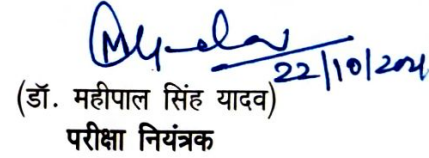 22/10/2021
(डॉ. महीपाल सिंह यादव)
परीक्षा नियंत्रक